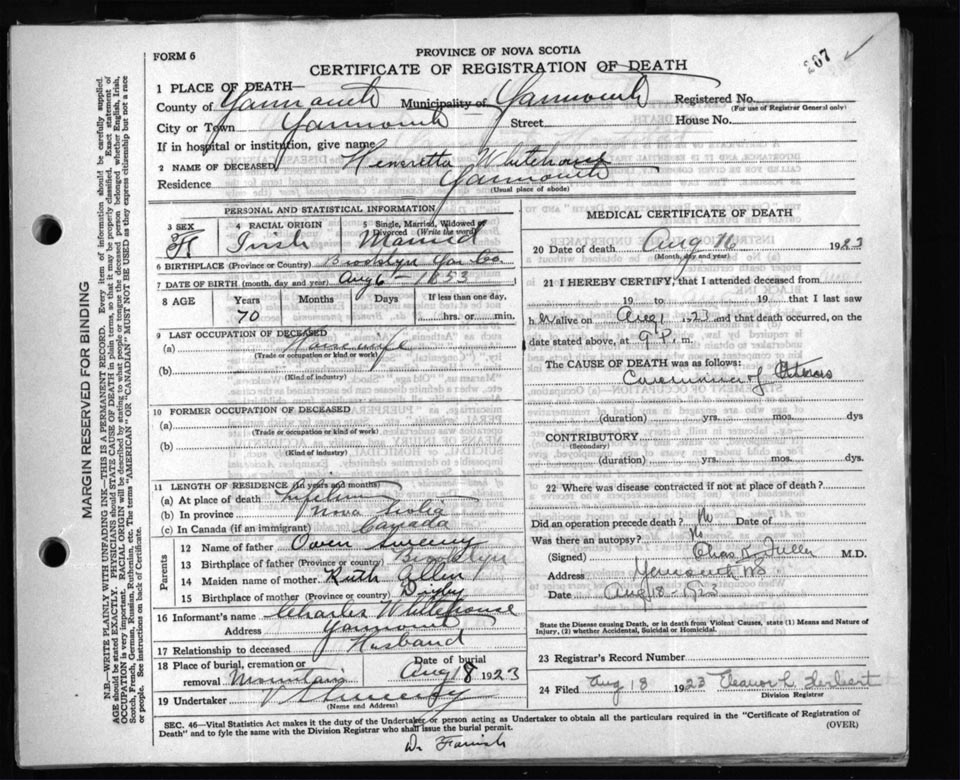 FORM 6
PROVINCE OF NOVA SCOTIA
CERTIFICATE OF REGISTRATION OF DEATH
207
1 PLACE OF DEATH—
County of Yarmouth Municipality of Yarmouth Registered No.
(For use of Registrar General only)
City or Town Yarmouth Street House No.
If in hospital or institution, give name
2 NAME OF DECEASED Henrietta Whitehouse
Residence Yarmouth
(Usual place of abode)
PERSONAL AND STATISTICAL INFORMATION
3 SEX F 4 RACIAL ORIGIN Irish 5 Single, Married, Widowed or Divorced (Write the word) Married
6 BIRTHPLACE (Province or Country) Brooklyn Yar Co
7 DATE OF BIRTH (month, day and year) Aug 6 - 1853
8 AGE Years Months Days If less than one day,
70 hrs. or min.
9 LAST OCCUPATION OF DECEASED
(a) Housewife
(Trade or occupation or kind or work)
(b)
(Kind of industry)
10 FORMER OCCUPATION OF DECEASED
(a)
(Trade or occupation or kind of work)
(b)
(Kind of industry)
11 LENGTH OF RESIDENCE (in years and months)
(a) At place of death Lifetime
(b) In province Nova Scotia
(c) In Canada (if an immigrant) Canada
Parents
12 Name of father Owen Sweeny
13 Birthplace of father (Province or country) Brooklyn
14 Maiden name of mother Ruth Allen
15 Birthplace of mother (Province or country)
16 Informant's name Charles Whitehouse
Address Yarmouth
17 Relationship to deceased Husband
18 Place of burial, cremation or removal Mountain Date of burial Aug 18 1923
19 Undertaker V Sweeny
(Name and Address)
MEDICAL CERTIFICATE OF DEATH
20 Date of death Aug 16 1923
(Month, day and year)
21 I HEREBY CERTIFY, that I attended deceased from
19 to 19 that I last saw
h er alive on Aug 1 1923 and that death occurred, on
date stated above, at 9 P.m.
The CAUSE OF DEATH was as follows:
Carcinoma of Uterus
(duration) yrs. mos. dys
CONTRIBUTORY
(Secondary)
(duration) yrs. mos. dys.
22 Where was disease contracted if not at place of death?
Did an operation precede death? No Date of
Was there an autopsy? No
(Signed) Chas K Fuller M.D.
Address Yarmouth NS
Date Aug 18 - 1923
State the Disease causing Death, or in death from Violent Causes, state (1) Means and Nature of Injury, (2) whether Accidental, Suicidal or Homicidal.
23 Registrar's Record Number
24 Filed Aug 18 1923 Eleanor L Herbert
Division Registrar
SEC. 46—Vital Statistics Act makes it the duty of the Undertaker or person acting as Undertaker to obtain all the particulars required in the "Certificate of Registration of
Death" and to fyle the same with the Division Registrar who shall issue the burial permit. (OVER)
Dr Farish
MARGIN RESERVED FOR BINDING
N.B.—WRITE PLAINLY WITH UNFADING INK—THIS IS A PERMANENT RECORD. Every item of information should be carefully supplied.
AGE should be stated EXACTLY. PHYSICIANS should STATE CAUSE OF DEATH in plain terms, so that it may be properly classified. Exact statement of
OCCUPATION is very important. RACIAL ORIGIN will be described by stating to what people or tongue the deceased person belonged whether English, Irish,
Scotch, French, German, Russian, Ruthenian, etc. The terms "AMERICAN" OR "CANADIAN" MUST NOT BE USED as they express citizenship but not a race
or people. See instructions on back of Certificate.